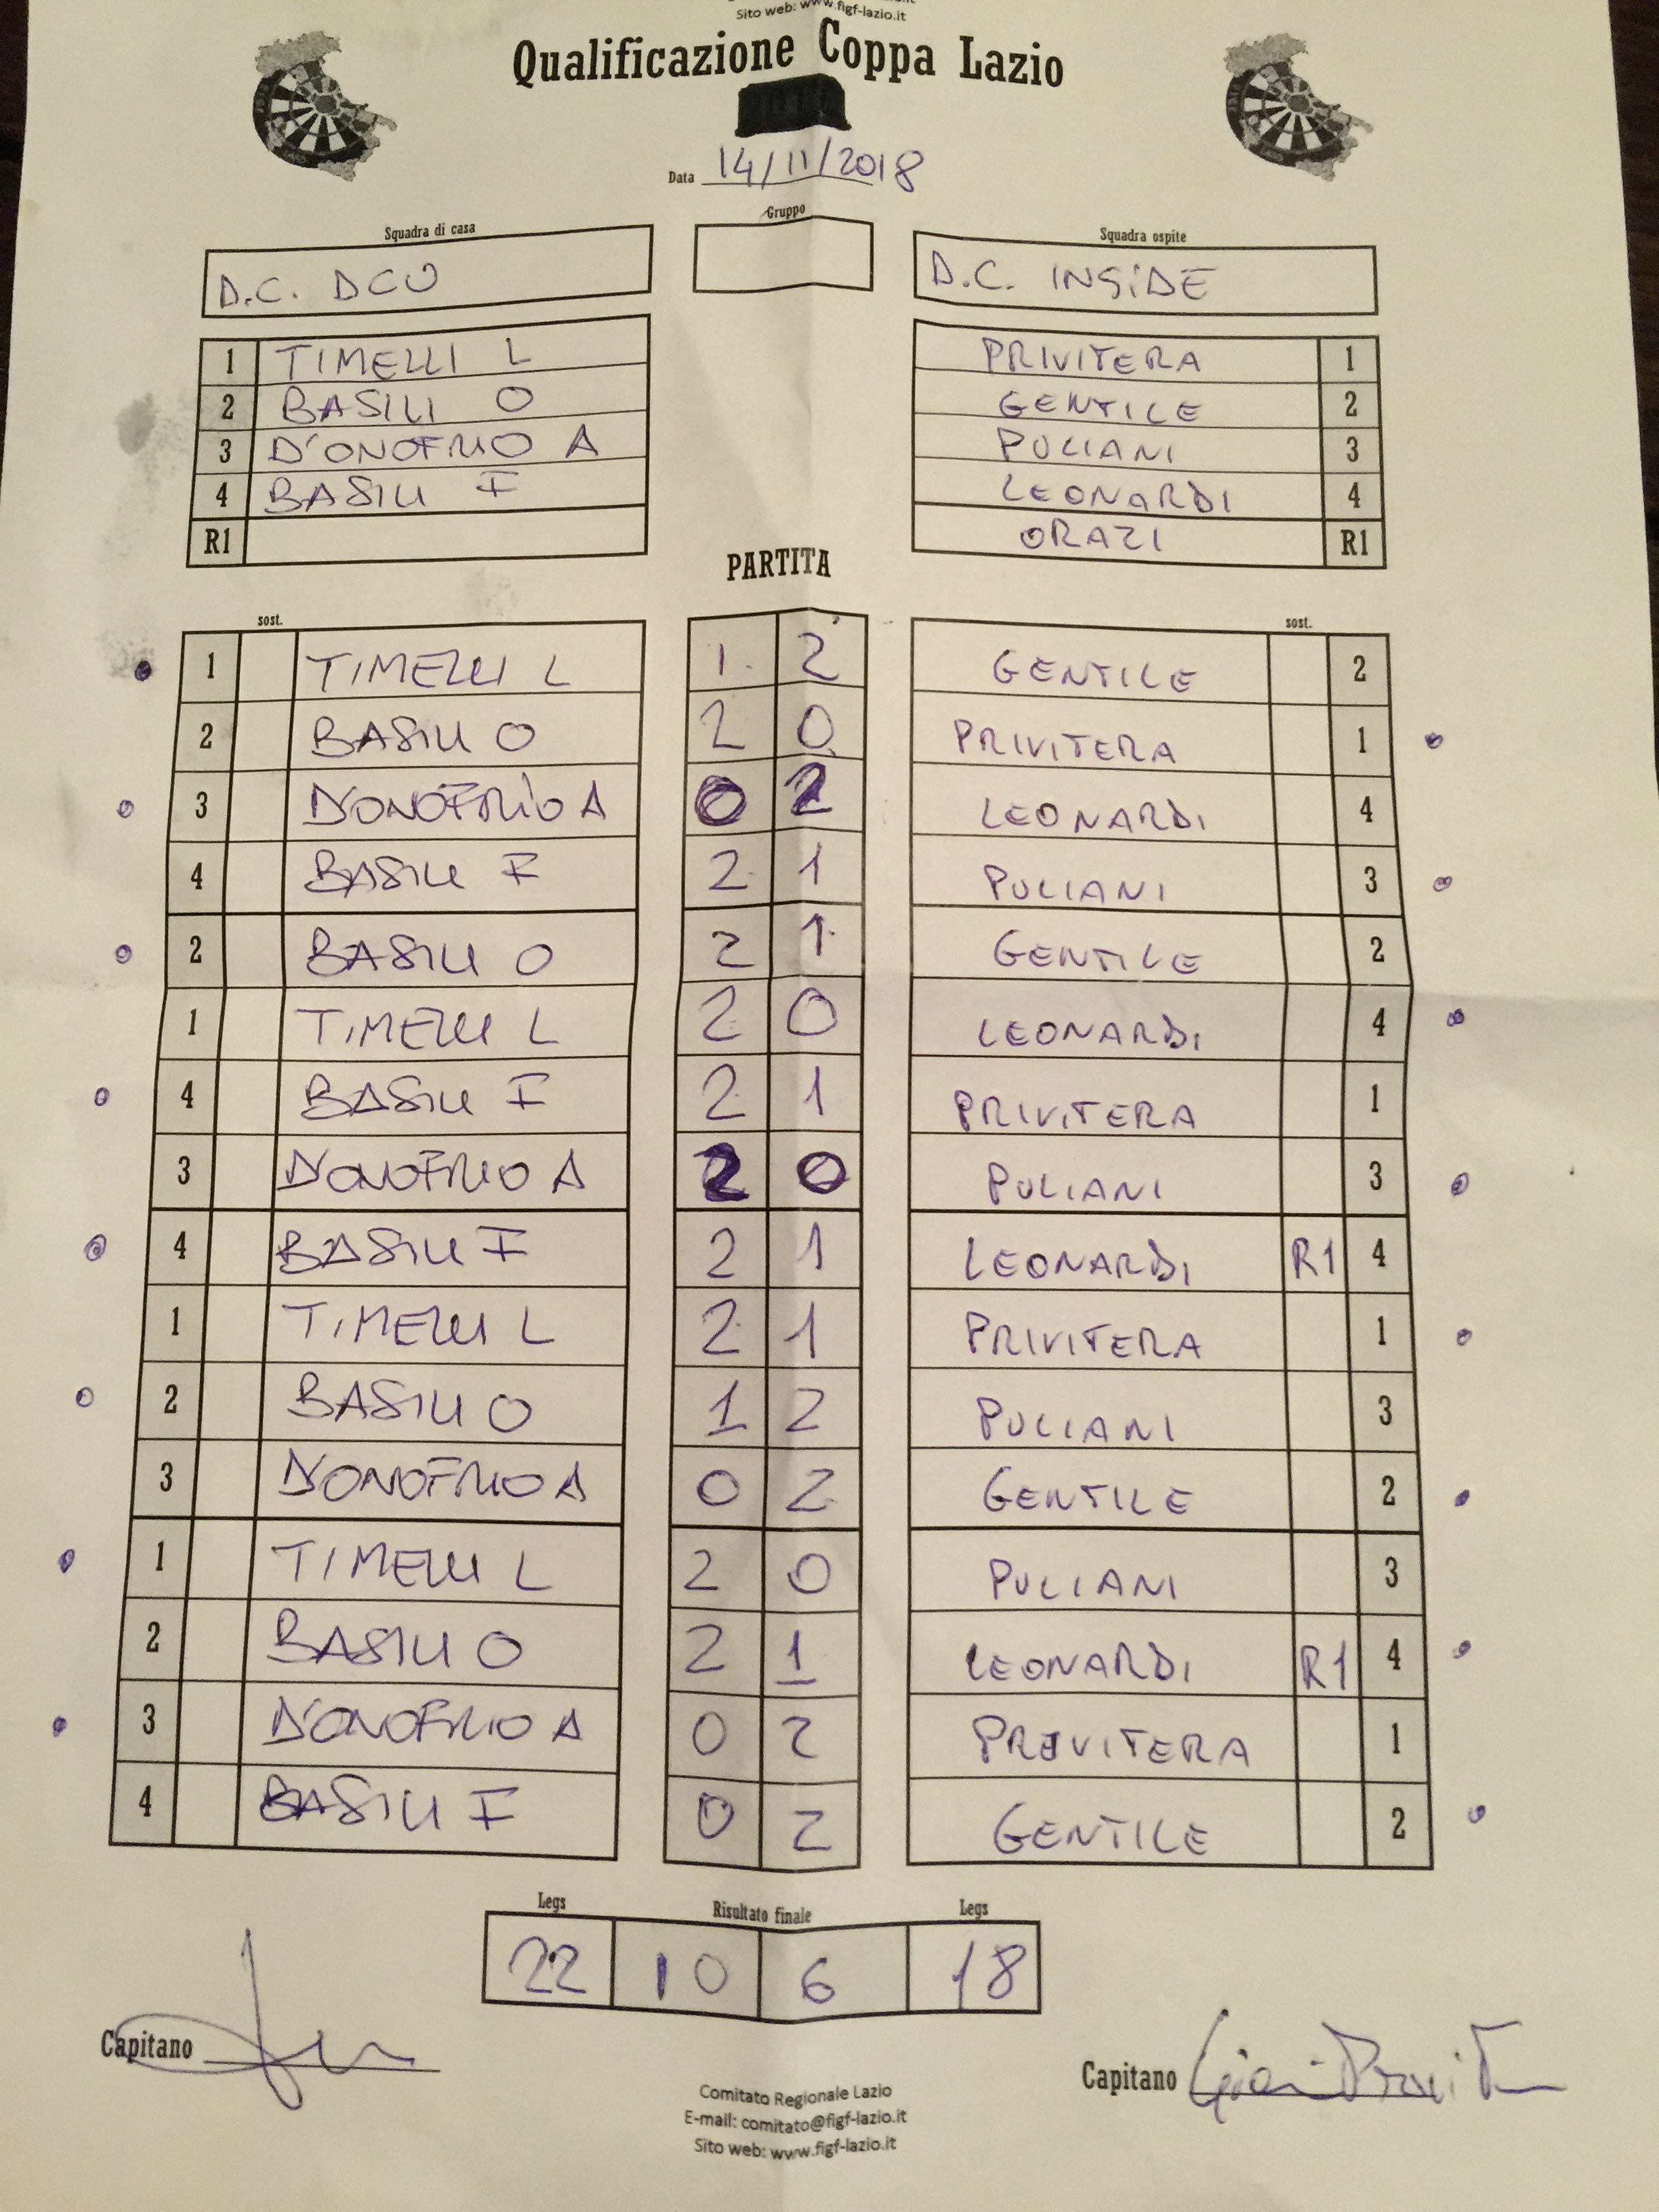 Sito web: www.figf-lazio.it
Qualificazione Coppa Lazio
Data 14/11/2018
Squadra di casa Gruppo Squadra ospite
D.C. DCU D.C. INSIDE
1 TIMELLI L PRIVITERA 1
2 BASILI O GENTILE 2
3 D'ONOFRIO A PULIANI 3
4 BASILI F LEONARDI 4
R1 ORAZI R1
PARTITA
sost. sost.
1 TIMELLI L 1 2 GENTILE 2
2 BASILI O 2 0 PRIVITERA 1
3 D'ONOFRIO A 0 2 LEONARDI 4
4 BASILI F 2 1 PULIANI 3
2 BASILI O 2 1 GENTILE 2
1 TIMELLI L 2 0 LEONARDI 4
4 BASILI F 2 1 PRIVITERA 1
3 D'ONOFRIO A 2 0 PULIANI 3
4 BASILI F 2 1 LEONARDI R1 4
1 TIMELLI L 2 1 PRIVITERA 1
2 BASILI O 1 2 PULIANI 3
3 D'ONOFRIO A 0 2 GENTILE 2
1 TIMELLI L 2 0 PULIANI 3
2 BASILI O 2 1 LEONARDI R1 4
3 D'ONOFRIO A 0 2 PREVITERA 1
4 BASILI F 0 2 GENTILE 2
Legs Risultato finale Legs
22 10 6 18
Capitano Capitano
Comitato Regionale Lazio
E-mail: comitato@figf-lazio.it
Sito web: www.figf-lazio.it